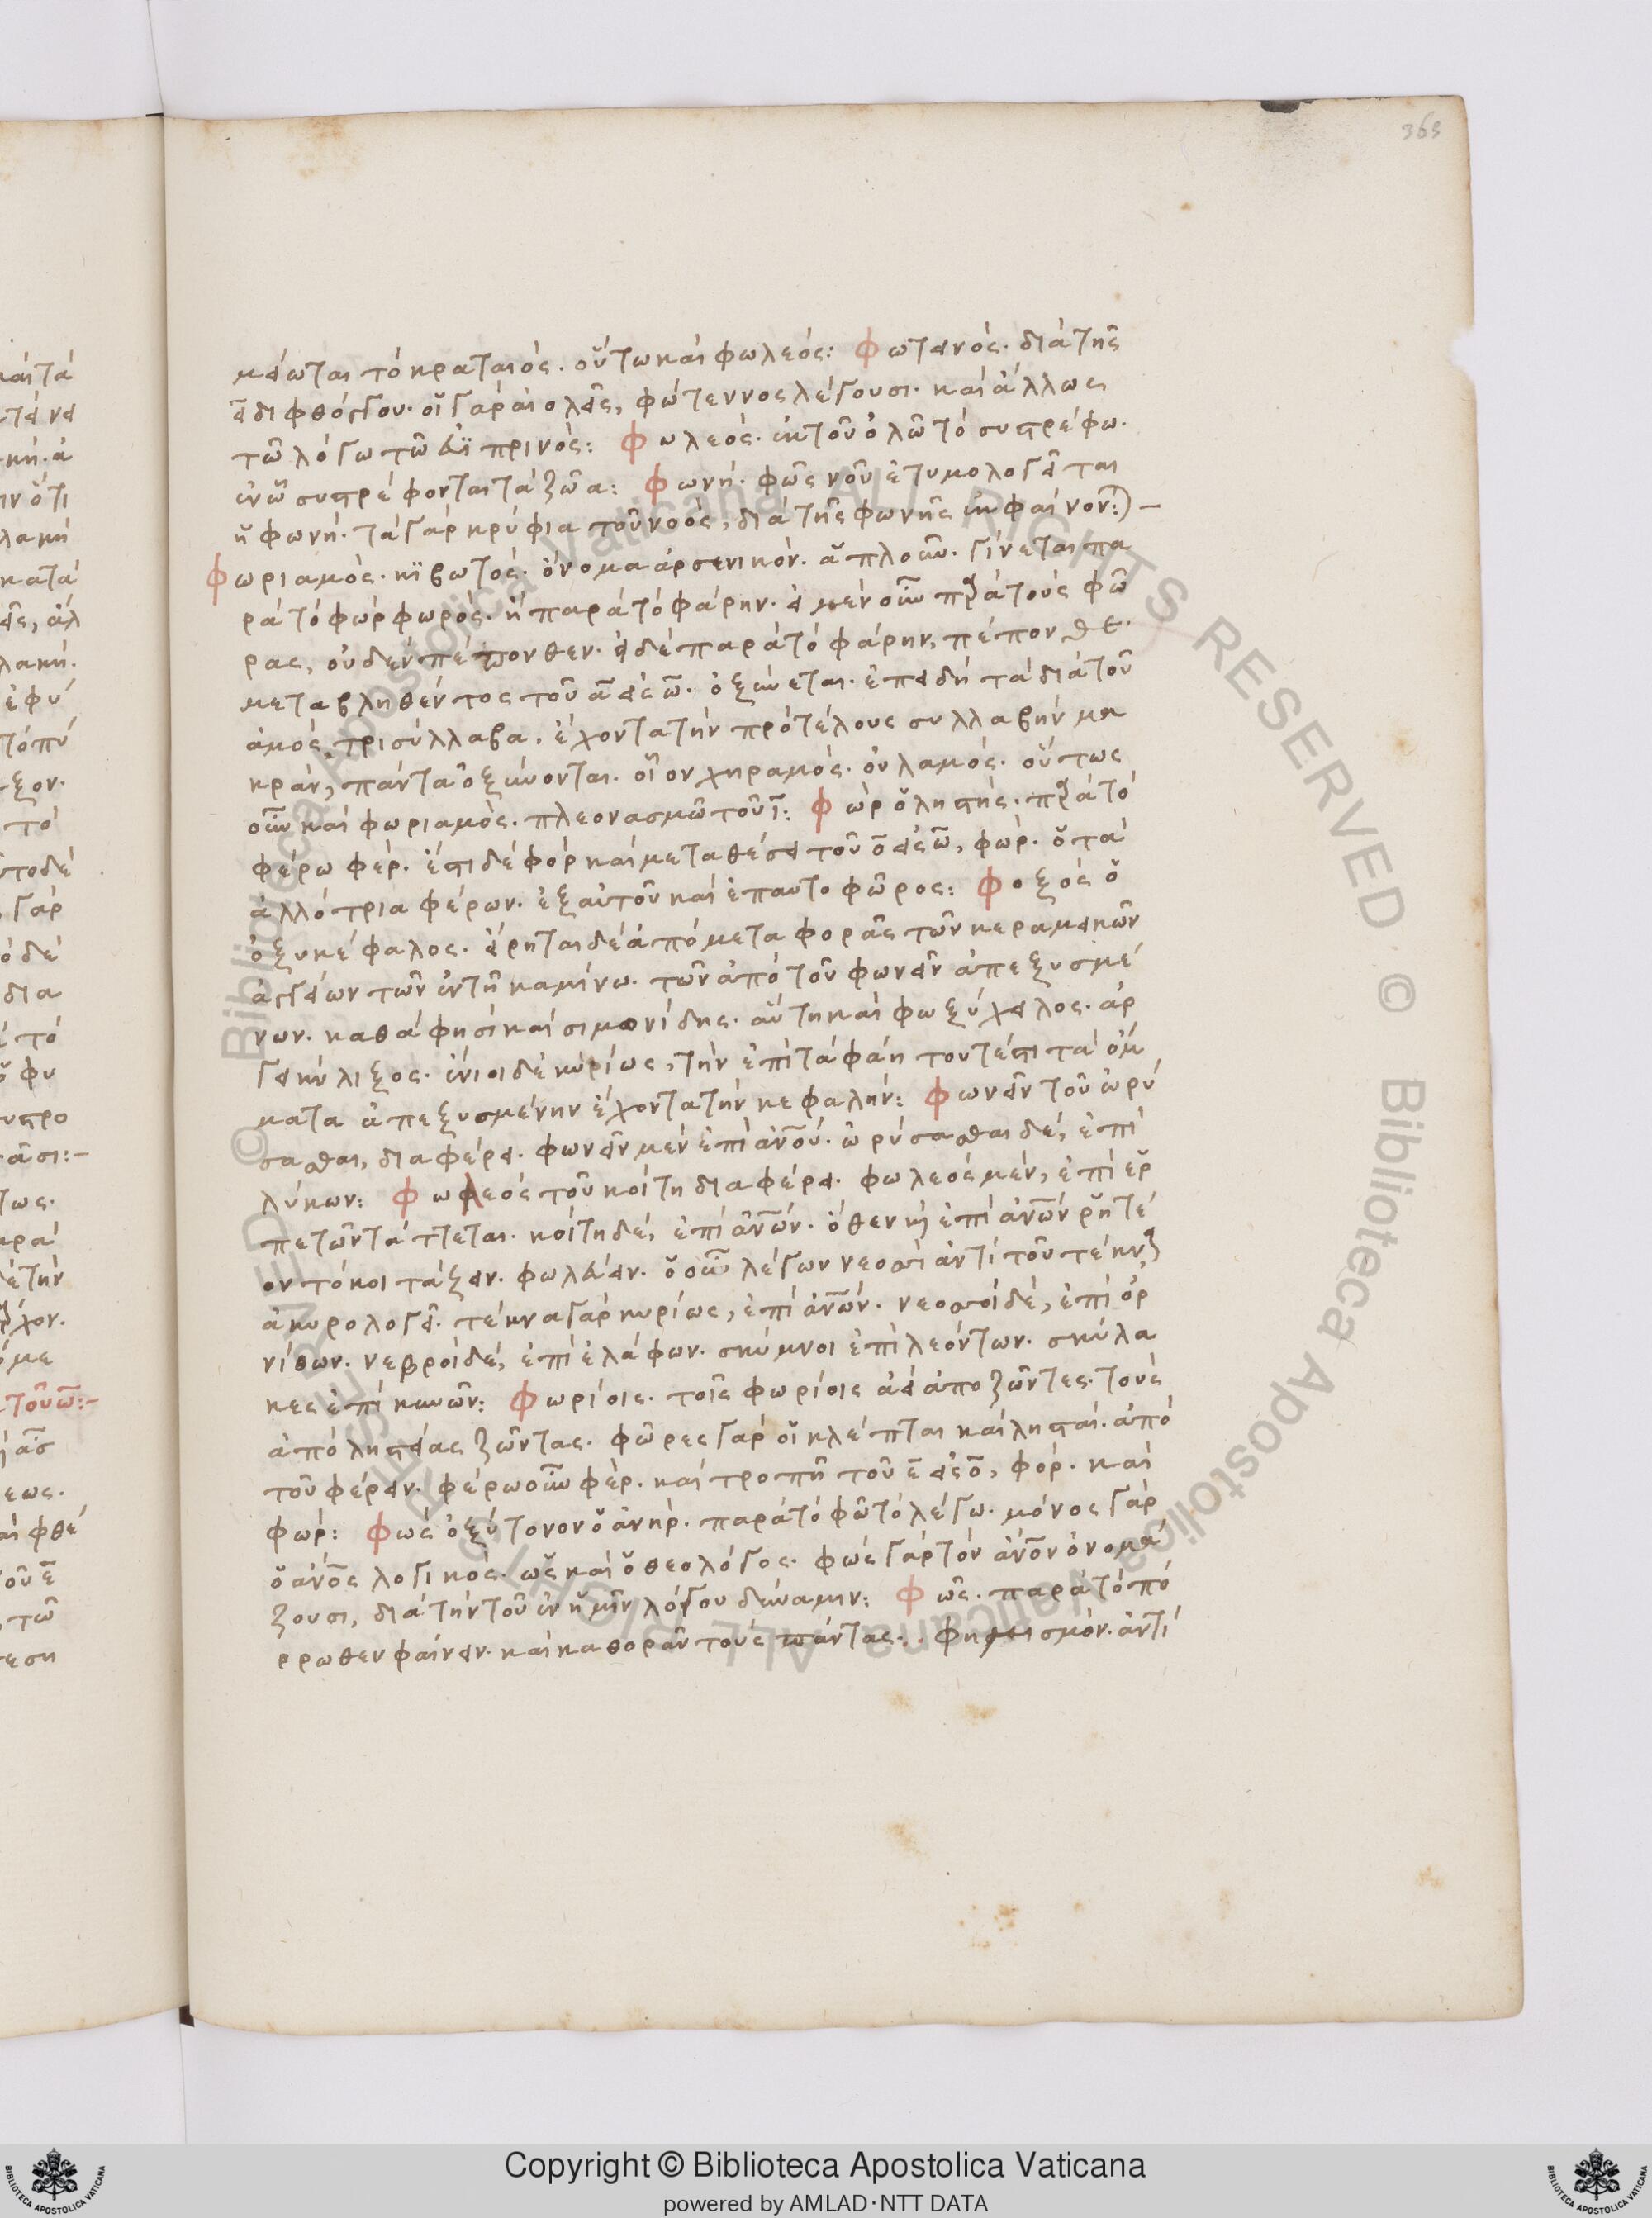 365
μείωται τὸ κραταιός. οὕτω καὶ φωλεός: Φωτεινός. διὰ τῆς
ει διφθόγγου. οἱ γὰρ αἰολεῖς, φώτεννος λέγουσι. καὶ ἄλλως
τῶ λόγω τῶ πρινός: Φωλεός. ἐκ τοῦ ὀλῶ τὸ συστρέφω.
ἐν ὧ συστρέφονται τὰ ζῶα: Φωνή. φῶς νοῦ ἐτυμολογεῖται
ἡ φωνή. τὰ γὰρ κρύφια τοῦ νοός, διὰ τῆς φωνῆς ἐκφαίνον:) –
Φωριαμός. κιβωτός. ὄνομα ἀρσενικόν. ἁπλοῦν. γίνεται πα
ρὰ τὸ φὼρ φωρός. ἢ παρὰ τὸ φάρην. εἰ μὲν οὖν πρὰ τοὺς φῶ
ρας, οὐδὲν πέπονθεν. εἰ δὲ παρὰ τὸ φάρην, πέπονθε.
μεταβληθέντος τοῦ α εἰς ω. ὀξύνεται. ἐπειδὴ τὰ διὰ τοῦ
αμος τρισύλλαβα. ἔχοντα τὴν πρὸ τέλους συλλαβὴν μα
κράν, πάντα ὀξύνονται. οἷον χηραμός. οὐλαμός. οὕτως
οὖν καὶ φωριαμός. πλεονασμῶ τοῦ ι: Φὼρ ὁ ληστής. πρὰ τὸ
φέρω φέρ. ἔστι δὲ φὸρ καὶ μεταθέσει τοῦ ο εἰς ω, φώρ. ὁ τὰ
ἀλλότρια φέρων. ἐξ αὐτοῦ καὶ ἐπαυτοφῶρος: Φοξὸς ὁ
ὀξυκέφαλος. εἴρηται δὲ ἀπὸ μεταφορᾶς τῶν κεραμεικῶν
ἀγγείων τῶν ἐν τῆ καμίνω. τῶν ἀπὸ τοῦ φωνεῖν ἀπεξυσμέ
νων. καθά φησι καὶ σιμωνίδης. αὕτη καὶ φωξύχειλος. ἀρ
γείη κύλιξος. ἔνιοι δὲ κυρίως, τὴν ἐπὶ τὰ φάη τουτέστι τὰ ὄμ
ματα ἀπεξυσμένην ἔχοντα τὴν κεφαλήν: Φωνεῖν τοῦ ὠρύ
σασθαι, διαφέρει. φωνεῖν μὲν ἐπὶ ἀνου. ὠρύσασθαι δὲ, ἐπὶ
λύκων: Φωλεὸς τοῦ κοίτη διαφέρει. φωλεὸς μὲν, ἐπὶ ἑρ
πετῶν τάττεται. κοίτη δὲ, ἐπὶ ἀνων. ὅθεν κὴ ἐπὶ ἀνων ῥητέ
ον τὸ κοιτάζειν. φωλεύειν. ὁ οὖν λέγων νεοσσοὶ ἀντὶ τοῦ τέκν
ἀκυρολογεῖ. τέκνα γὰρ κυρίως, ἐπὶ ἀνων. νεοσσοὶ δὲ, ἐπὶ ὀρ
νίθων. νεβροὶ δὲ, ἐπὶ ἐλάφων. σκύμνοι ἐπὶ λεόντων. σκύλα
κες ἐπὶ κυνῶν: Φωρίοις. τοῖς φωρίοις ἀεὶ ἀποζῶντες. τοὺς
ἀπὸ ληστείας ζῶντας. φῶρες γὰρ οἱ κλέπται καὶ λησταί. ἀπὸ
τοῦ φέρειν. φέρω οὖν φέρ. καὶ τροπῆ τοῦ ε εἰς ο, φόρ. καὶ
φώρ: Φὼς ὀξύτονον ὁ ἀνήρ. παρὰ τὸ φῶ τὸ λέγω. μόνος γὰρ
ὁ ἀνος λογικός. ὡς καὶ ὁ θεολόγος. φὼς γὰρ τὸν ἀνον ὀνομά
ζουσι, διὰ τὴν τοῦ ἐν ἡμῖν λόγου δύναμιν: Φῶς. παρὰ τὸ πό
ρρωθεν φαίνειν. καὶ καθορᾶν τοὺς πάντας. . ἀντὶ